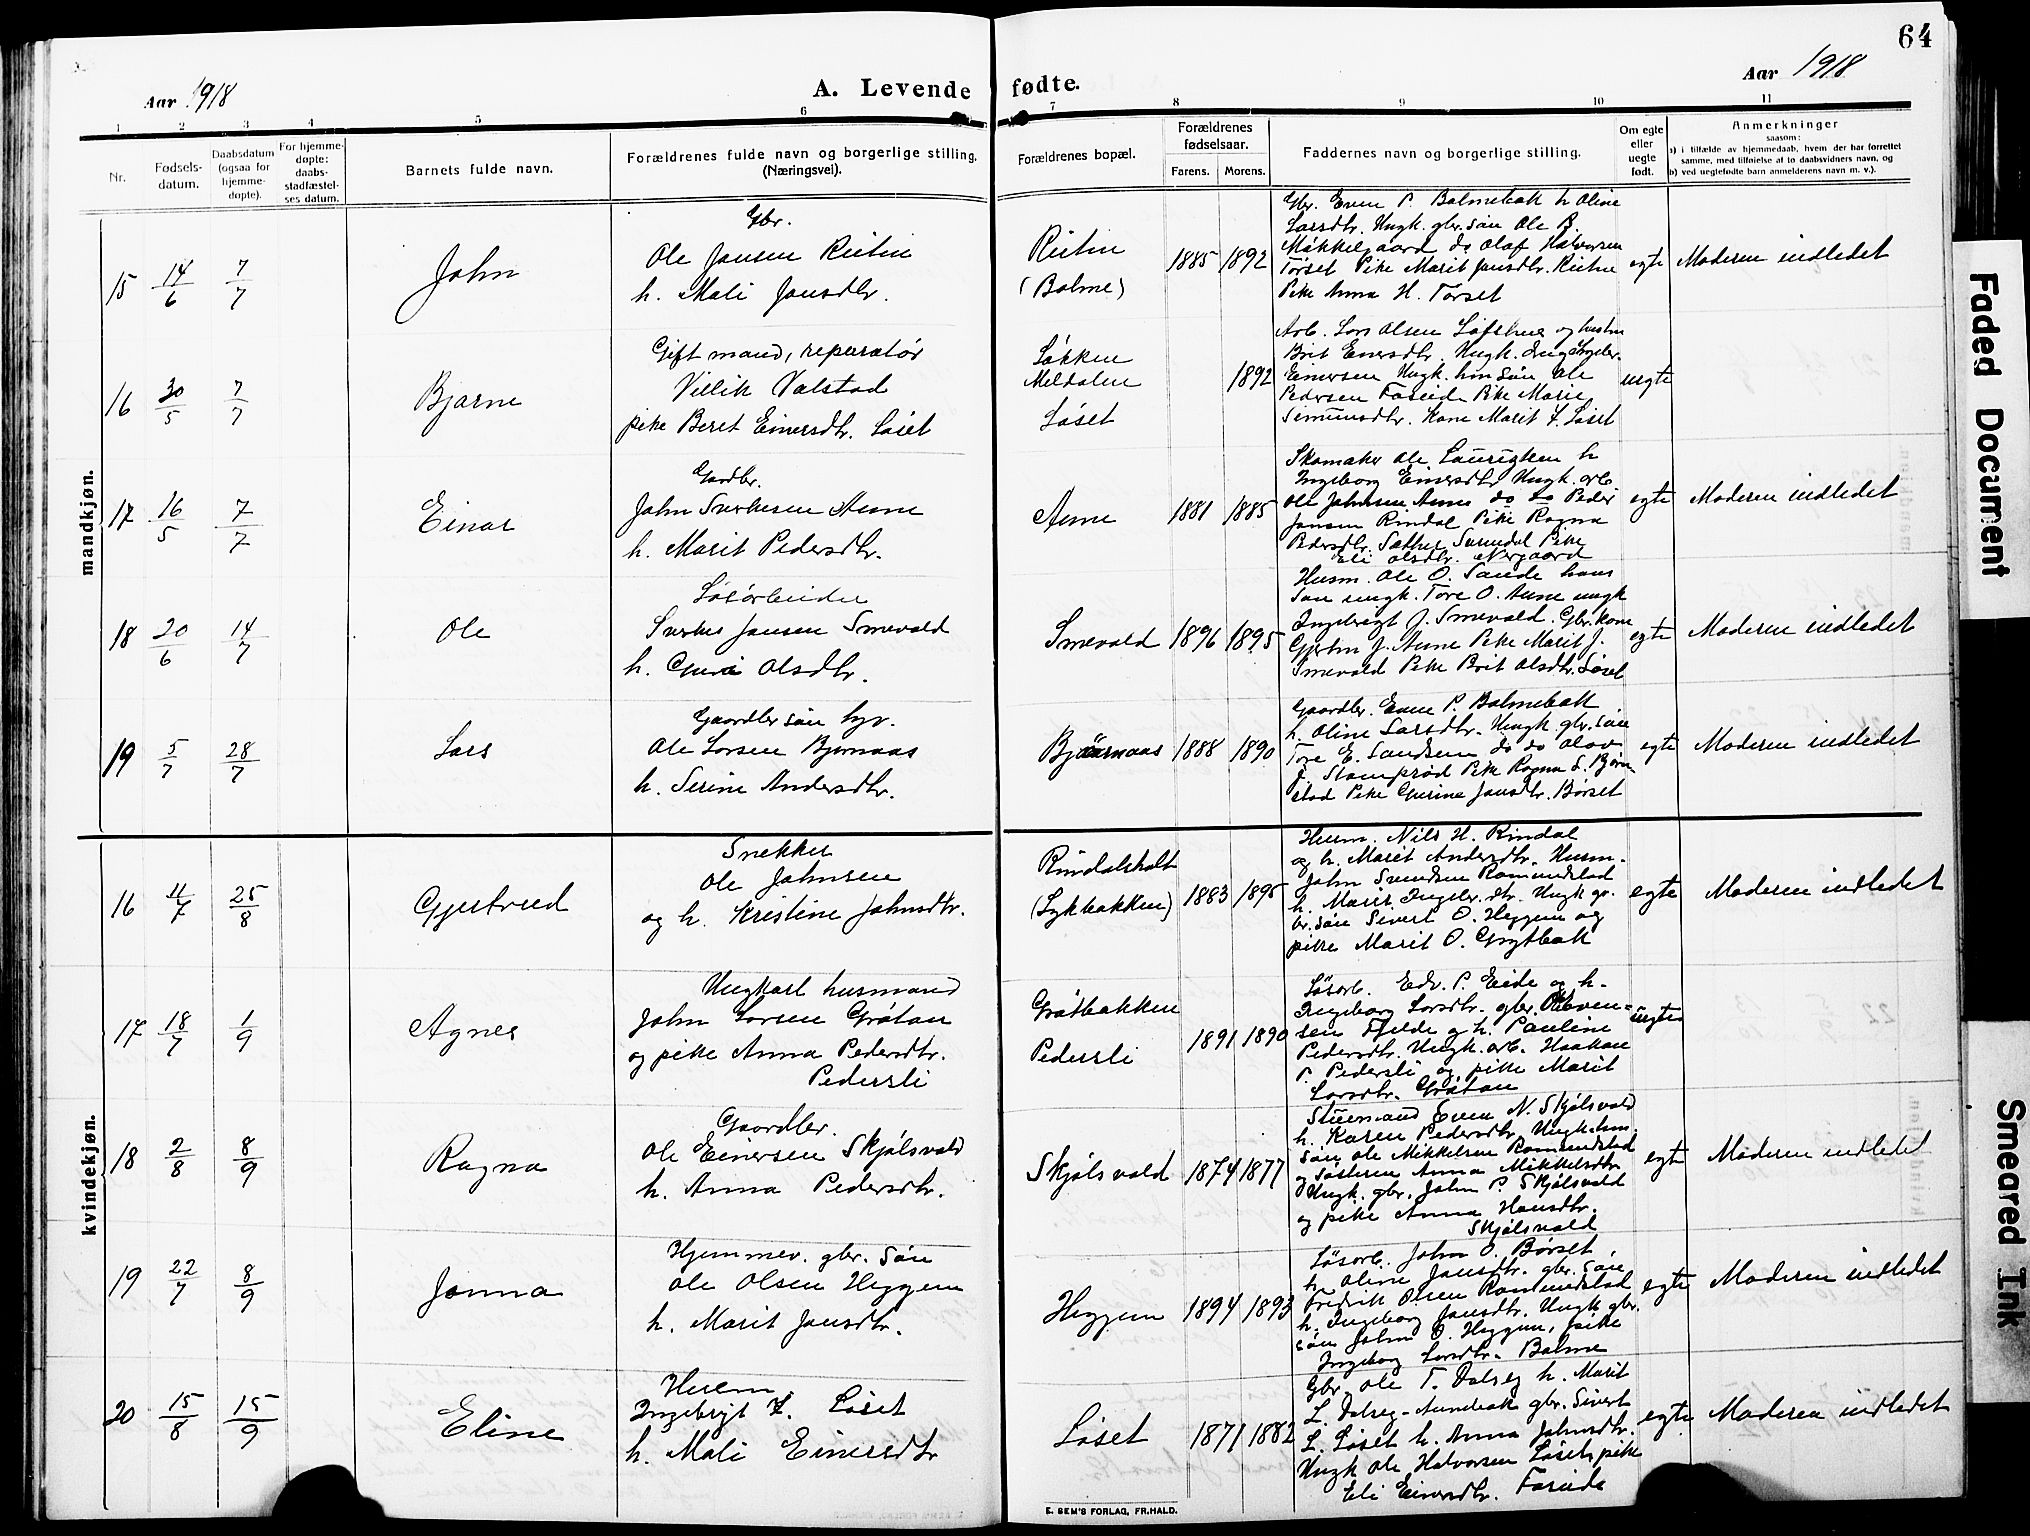 64
Aar 1918
A. Levende fødte.
Aar 1918
1 2 3 4 5 6 7 8 9 10 11
Nr.
Fødsels-
datum.
Daabsdatum
(ogsaa for
hjemme-
døpte).
For hjemme-
døpte:
daabs-
stadfæstel-
ses datum.
Barnets fulde navn.
Forældrenes fulde navn og borgerlige stilling.
(Næringsvei).
Forældrenes bopæl.
Forældrenes
fødselsaar.
Farens. Morens.
Faddernes navn og borgerlige stilling.
Om egte
eller
uegte
født.
Anmerkninger
saasom:
a) i tilfælde av hjemmedaab, hvem der har forrettet
samme, med tilføielse af to daabsvidners navn, og
b) ved uegtefødte barn anmelderens navn m. v.).
mandkjøn.
15 14/6 7/7 John
Gbr.
Ole Jansen
h. Mali Jonsdtr.
(Bolme)
1885 1892
Gbr. Even P. Bolmebak h Oline
Larsdtr. Ungk. gbr. søn Ole R.
Møkkelgaard do Olaf Halvorsen
Torset Pike Marit Jonsdtr.
Pike Anna H. Torset
egte Moderen indledet
16 30/5 7/7 Bjarne
Gift mand, reparatør
Villik Valstad
pike Beret Einersdtr. Løset
Løkken
Meldalen
Løset
1892
Arb. Lars Olsen Løfshus og hustru
Brit Enersdtr. Ungk. Ingebr.
Einersen Ungk. hm søn Ole
Pedersen Faseid Pike Marie
Simunsdtr. Kone Marit L. Løset
uegte
17 16/5 7/7 Einar
Gardbr.
John Sverkesen Aune
h. Marit Pedersdtr.
Aune
1881 1885
Skomaker Ole Lauritzen h
Ingeborg Einersdtr Ungk. arb
Ole Johnsen Aune do do Peder
Jansen Rindal Pike Ragna
Pedersdtr. Sæther Surendal Pike
Eli Olsdtr. Nergaard
egte Moderen indledet
18 20/6 14/7 Ole
Løsarbeider
Sverke Jansen Smevold
h. Guri Olsdtr.
Smevold
1896 1895
Husm. Ole O. Sande hans
søn ungk. Tore O. Aune ungk
Ingebrigt J. Smevald. Gbr. kone
J. Aune Pike Marit J.
Smevald Pike Brit Olsdtr. Løset
egte Moderen indledet
19 5/7 28/7 Lars
Gaardbr søn hjv.
Ole Larsen Bjørnaas
h. Serine Andersdtr.
Bjørnaas
1888 1890
Gaardbr. Even P. Bolmebak
h. Oline Larsdtr. Ungk gbr. søn
Tore E. Sandsen do do Olav
J. Stomprød Pike Ragna L. Bjørn-
stad Pike Gurine Jonsdtr. Børset
egte Moderen indledet
kvindekjøn.
16 11/7 25/8 Gjertrud
Snekker
Ole Johnsen
og h. Kristine Johnsdtr.
Rindalsholt
(Lykbakken)
1883 1895
Husm. Nils H. Rindal
og h. Marit Andersdtr. Husm.
John Svendsen Romundstad
h. Marit Ingebr.dtr. Ungk ga-
br. søn Sivert O. Heggem og
pike Marit O. Grytbak
egte Moderen indledet
17 18/7 1/9 Agnes
Ungkarl husmand
John Larsen Grøtan
og pike Anna Pedersdtr.
Pedersli
Grøtbakken
Pedersli
1891 1890
Løsarb. Edv. P. Eide og h.
Ingeborg Larsdtr. gbr. Ole Even-
sen Fjelde og h. Pauline
Pedersdtr. Ungk. arb. Haakon
P. Pedersli og pike Marit
Larsdtr. Grøtan
uegte
18 2/8 8/9 Ragna
Gaardbr.
Ole Einersen Skjølsvold
h. Anna Pedersdtr.
Skjølsvold
1874 1877
Stuemand Even N. Skjølsvold
h. Karen Pedersdtr. Ungk. hm.
søn Ole Mikkelsen Romundstad
og søsteren Anna Mikkelsdtr
Ungk. gbr. John P. Skjølsvold
og pike Anna Hansdtr.
Skjølsvold
egte Moderen indledet
19 22/7 8/9 Jonna
Hjemmev. gbr. søn
Ole Olsen Heggem
h. Marit Jonsdtr.
Heggem
1894 1893
Løsarb. John O. Børset
h. Oline Jonsdtr. gbr. søn
Fredrik Olsen Romundstad
h. Ingeborg Jonsdtr. Ungk gbr.
søn John O. Heggem, pike
Ingeborg Larsdtr. Bolme
egte Moderen indledet
20 15/8 15/9 Eline
Husm.
Ingebrigt L. Løset
h. Mali Einersdtr
Løset
1871 1882
Gbr. Ole T. Dalseg h. Marit
L. Dalseg-Aunebak gbr. Sivert
L. Løset h. Anna Johnsdtr.
Ungk Ole Halvorsen Løset pike
Eli Einersdtr. Faseide
egte Moderen indledet
E. SEM'S FORLAG, FR.HALD.
Faded Document
Smeared Ink